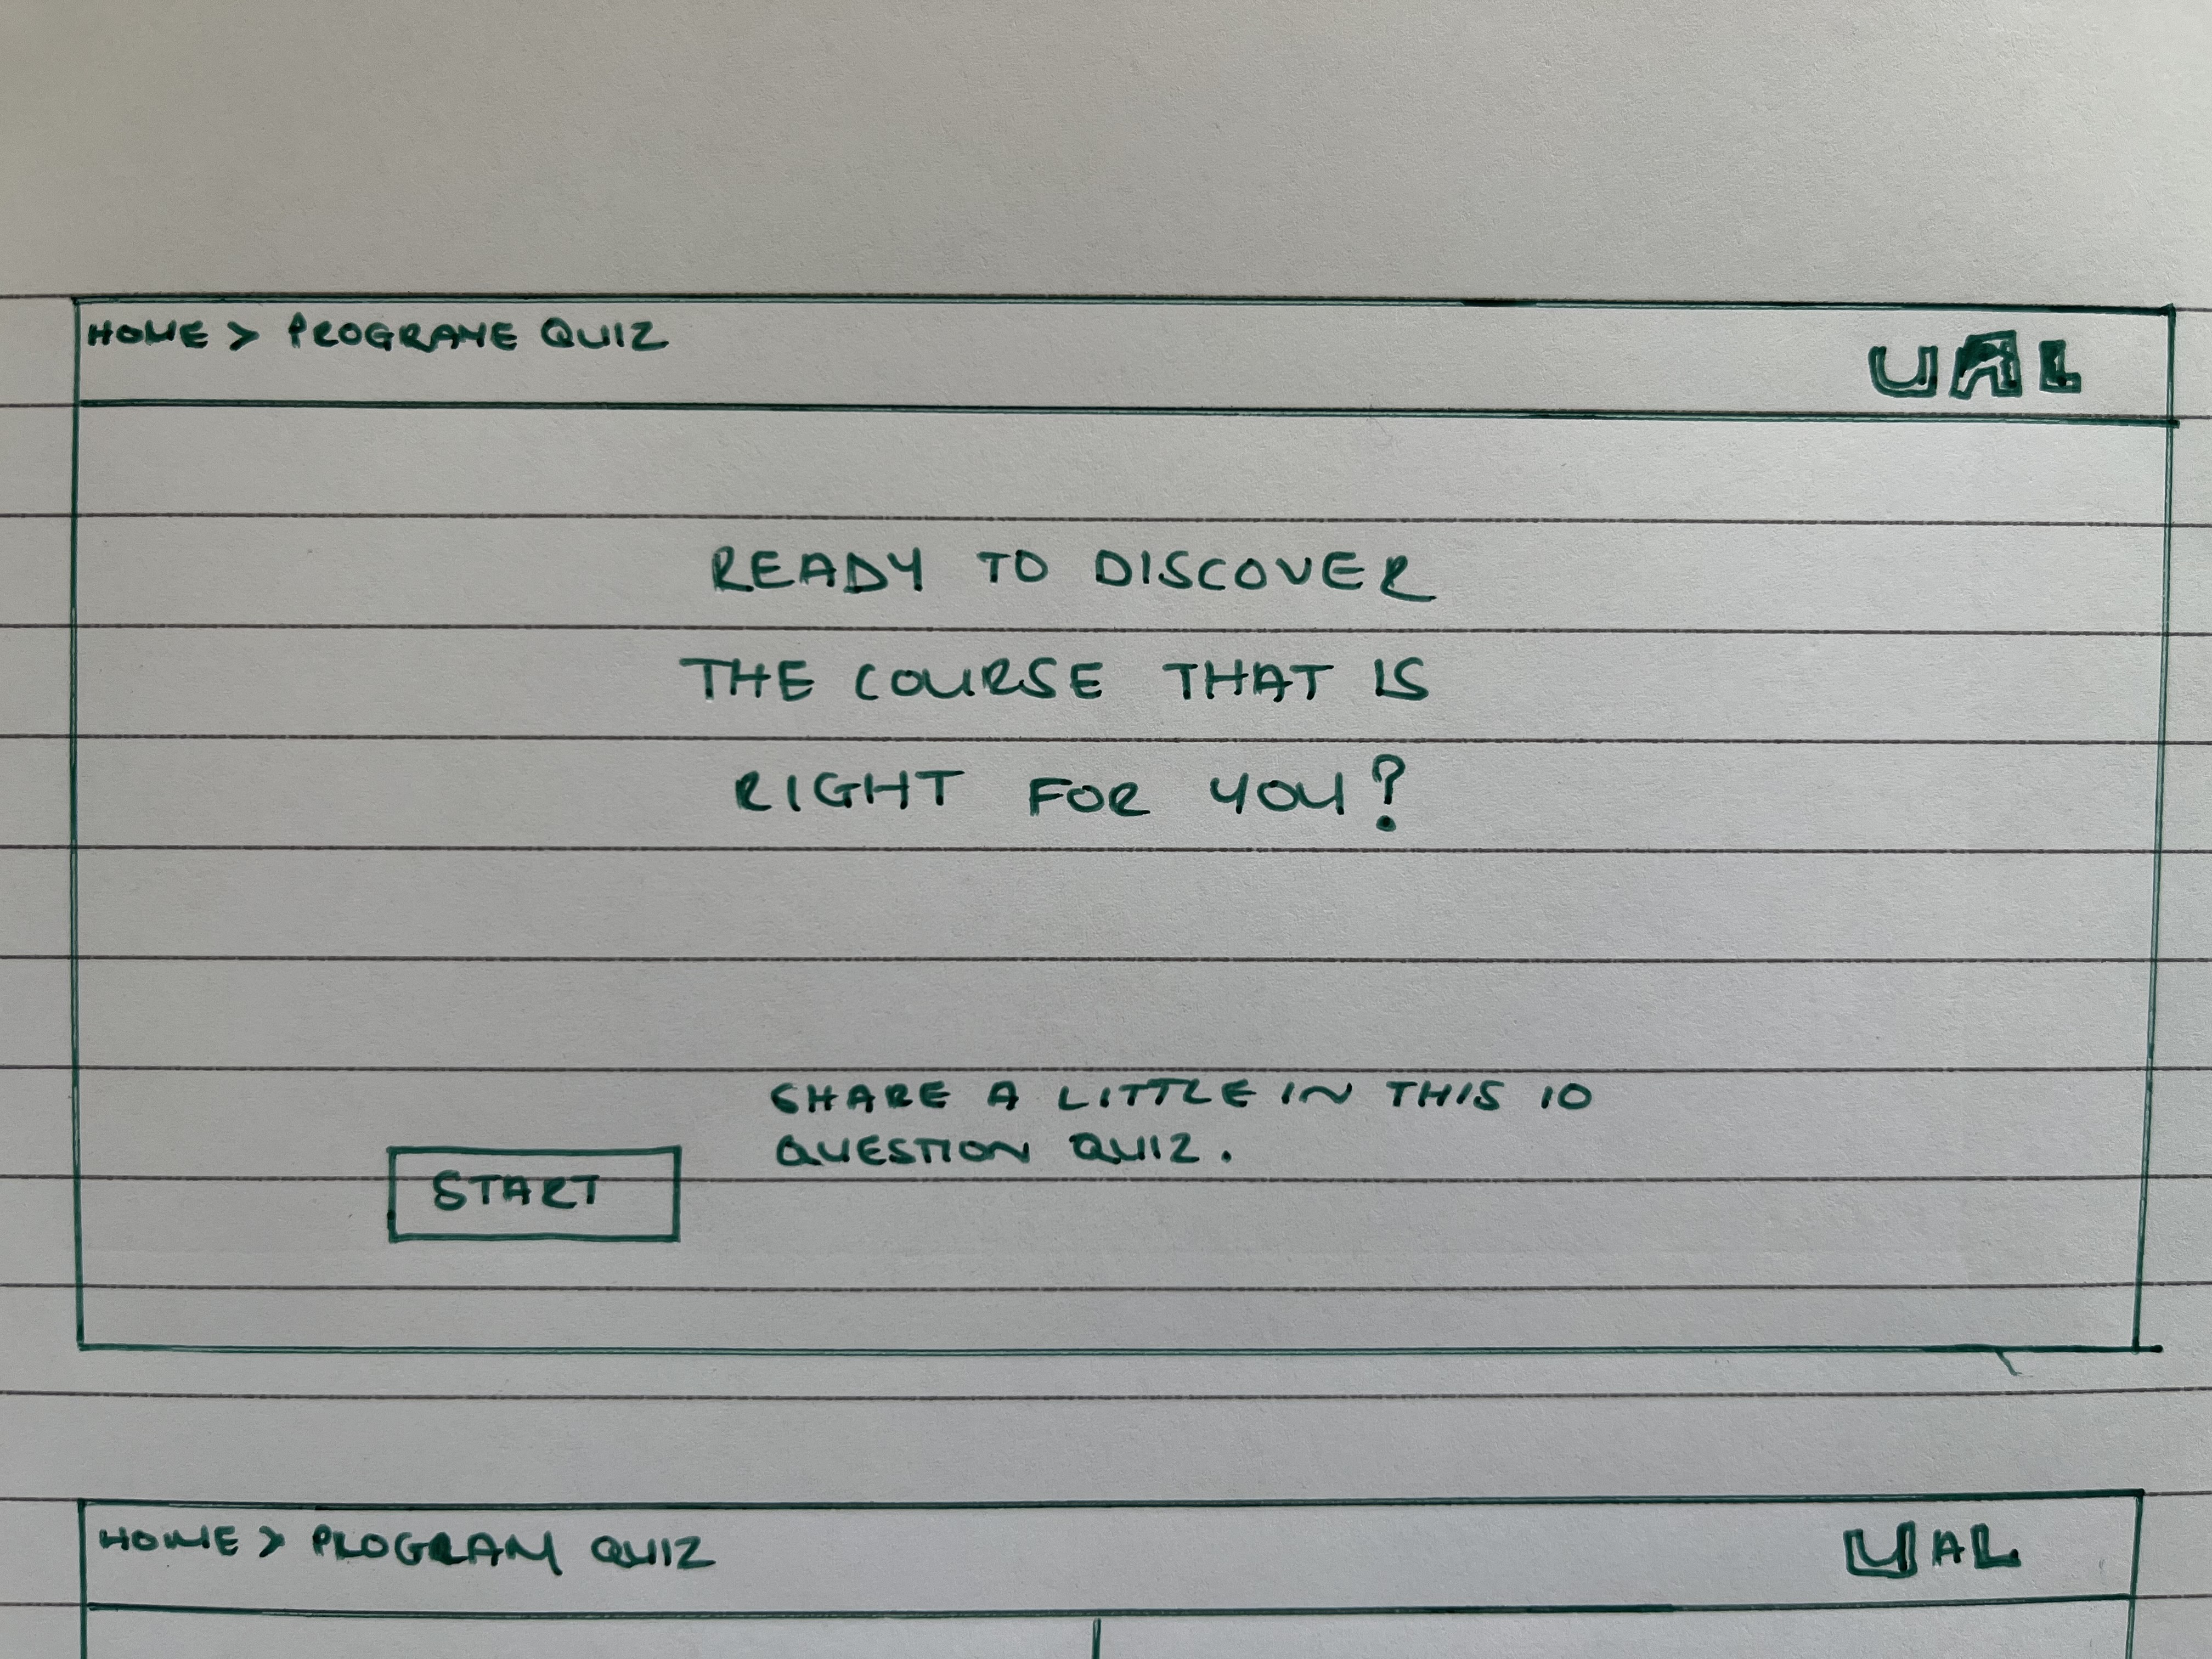 HOME > PROGRAME QUIZ
UAL
READY TO DISCOVER
THE COURSE THAT IS
RIGHT FOR YOU?
SHARE A LITTLE IN THIS 10
QUESTION QUIZ.
START
HOME > PROGRAM QUIZ
UAL